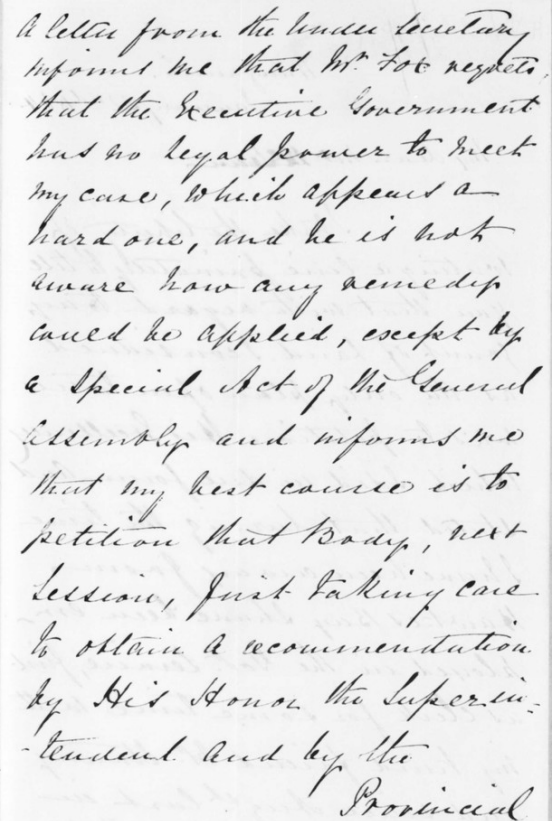 A letter from the Under Secretary
informs me that Mr. Fox regrets
that the Executive Government
has no legal power to meet
my case, which appears a
hard one, and he is not
aware how any remedy
could be applied, except by
a special Act of the General
Assembly and informs me
that my best course is to
petition that Body, next
Session, first taking care
to obtain a recommendation
by His Honor the Superin-
-tendent and by the
Provincial